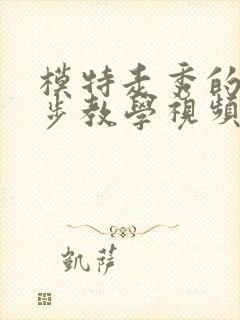 模特走秀的
步教學視頻
凱薩